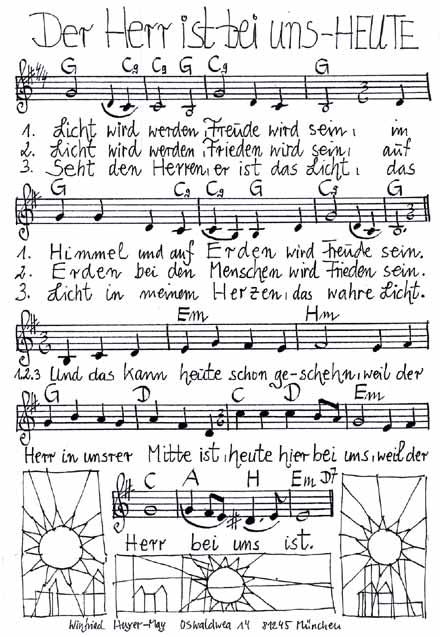 Der Herr ist bei uns-HEUTE
G C9 C9 G C9 G
1. Licht wird werden, Freude wird sein, im
2. Licht wird werden, Frieden wird sein, auf
3. Seht den Herren, er ist das Licht, das
G C9 C9 G C9 G
1. Himmel und auf Erden wird Freude sein.
2. Erden bei den Menschen wird Frieden sein.
3. Licht in meinem Herzen, das wahre Licht.
Em Hm
1.2.3 Und das kann heute schon ge-schehn, weil der
G D C D Em
Herr in unsrer Mitte ist, heute hier bei uns, weil der
C A H Em D7
Herr bei uns ist.
Winfried Heyer-May Oswaldweg 14 81245 München